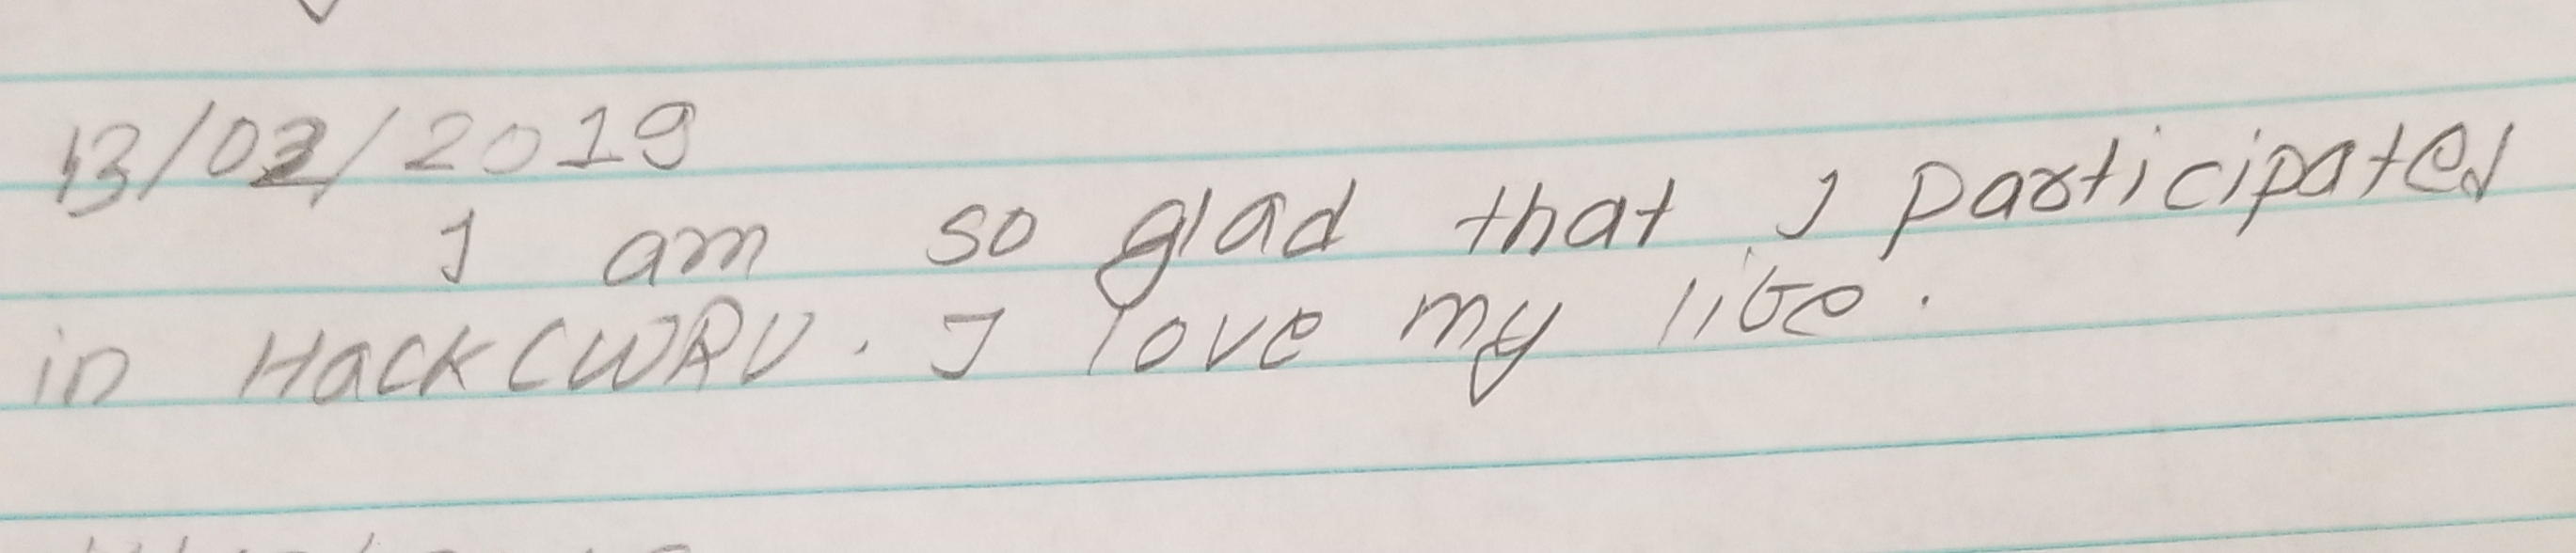 13/02/2019
I am so glad that I participated
in HackCWRU. I love my life.